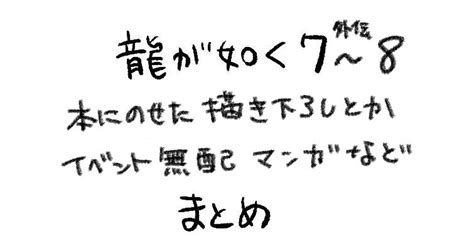 龍が如く7外伝〜8
本にのせた描き下ろしとか
イベント無配マンガなど
まとめ